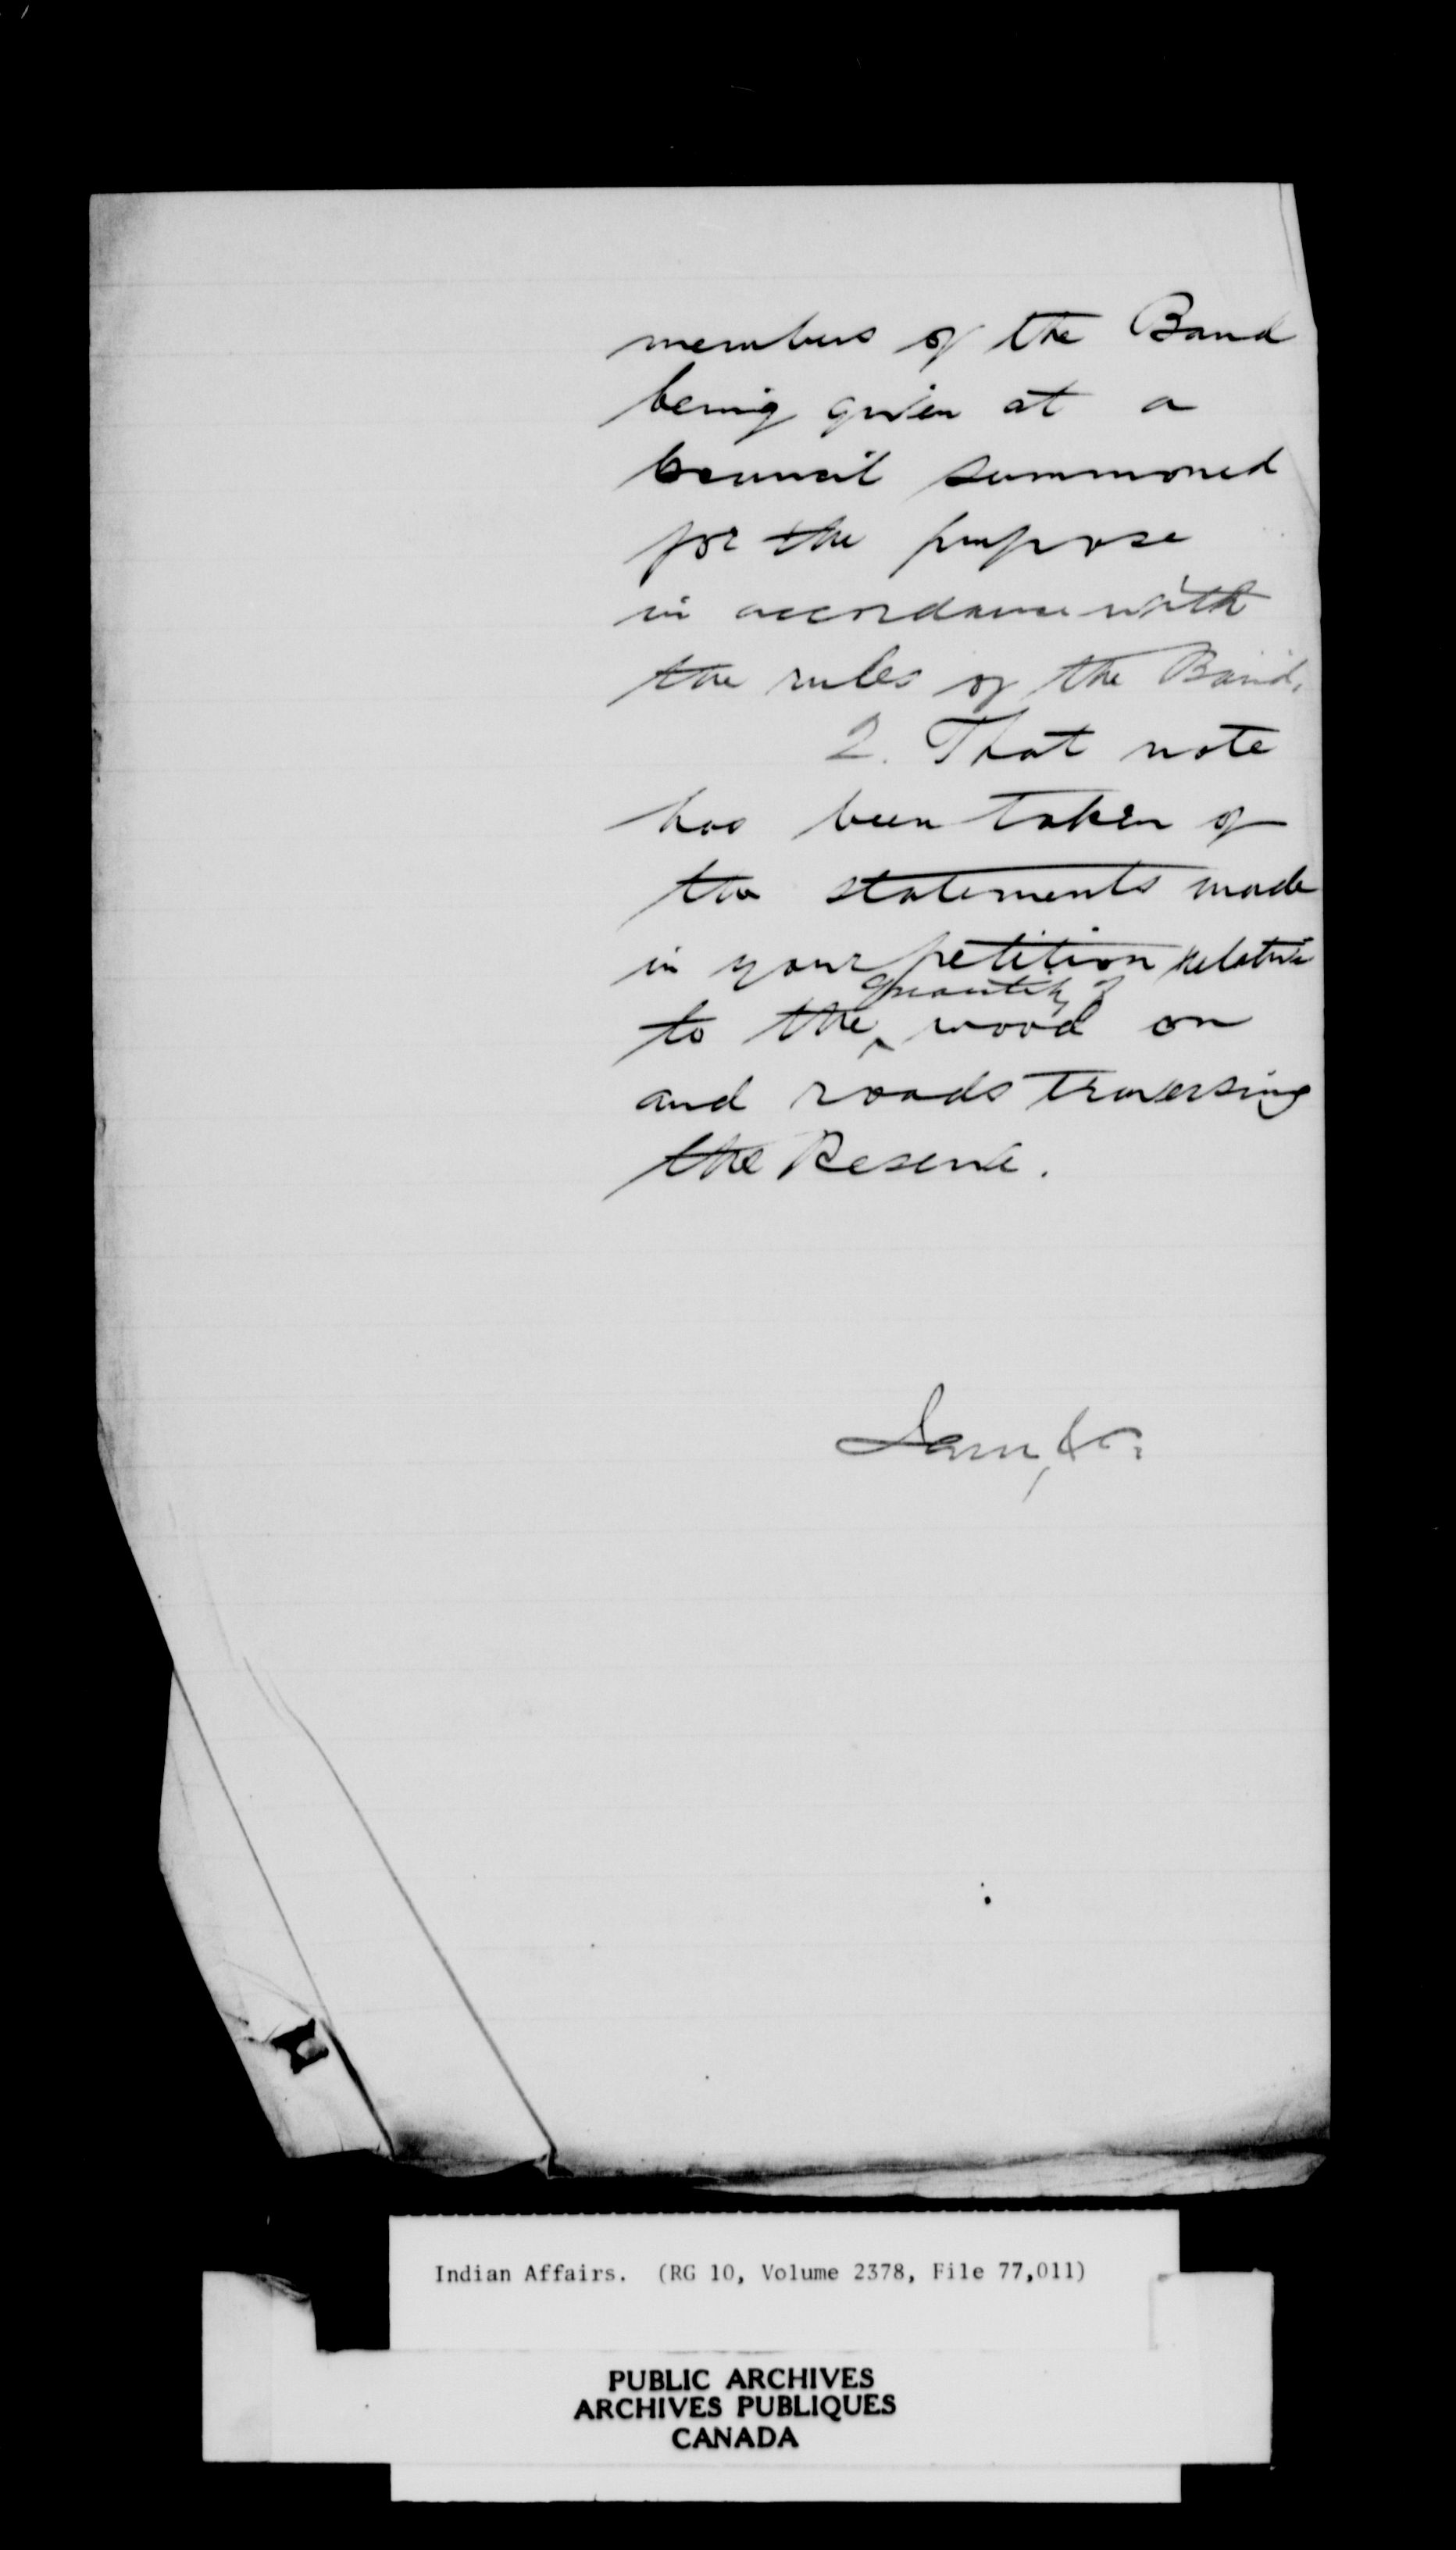 members of the Band
being given at a
Council summoned
for the purpose
in accordance with
the rules of the Band.
2. That note
has been taken of
the statements made
in your petition relative
quantity of
to the ^ wood on
and roads traversing
the Reserve.
I am, &c.
Indian Affairs. (RG 10, Volume 2378, File 77,011)
PUBLIC ARCHIVES
ARCHIVES PUBLIQUES
CANADA